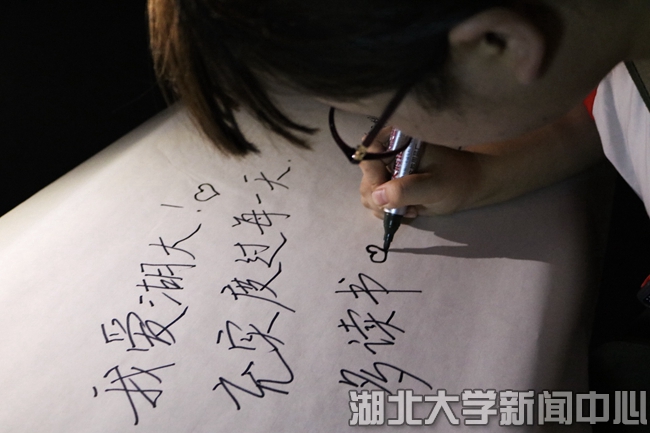 我爱湖大！♡
充实度过每一天.
多读书♡
湖北大学新闻中心